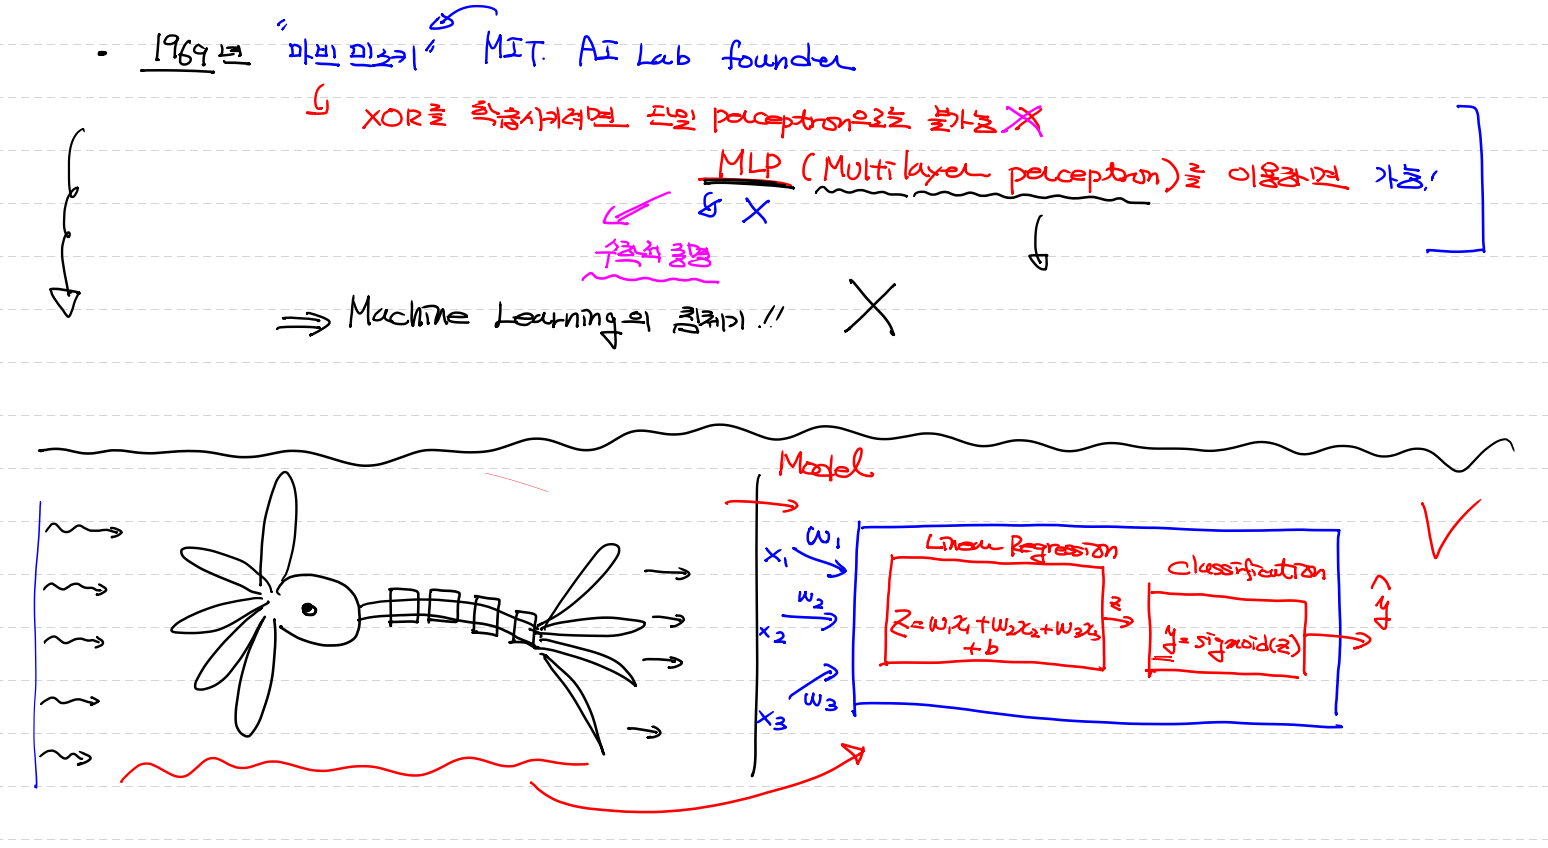 • 1969년 "마빈 민스키" MIT. AI Lab founder
XOR를 학습시키려면 단일 perceptron으로는 불가능
MLP (Multilayer perceptron)를 이용하면 가능!
수학적 증명
⇒ Machine Learning의 침체기!!
Model
x₁ w₁
x₂ w₂
x₃ w₃
Linear Regression
Z = w₁x₁ + w₂x₂ + w₃x₃
+ b
z
Classification
y = sigmoid(z)
ŷ